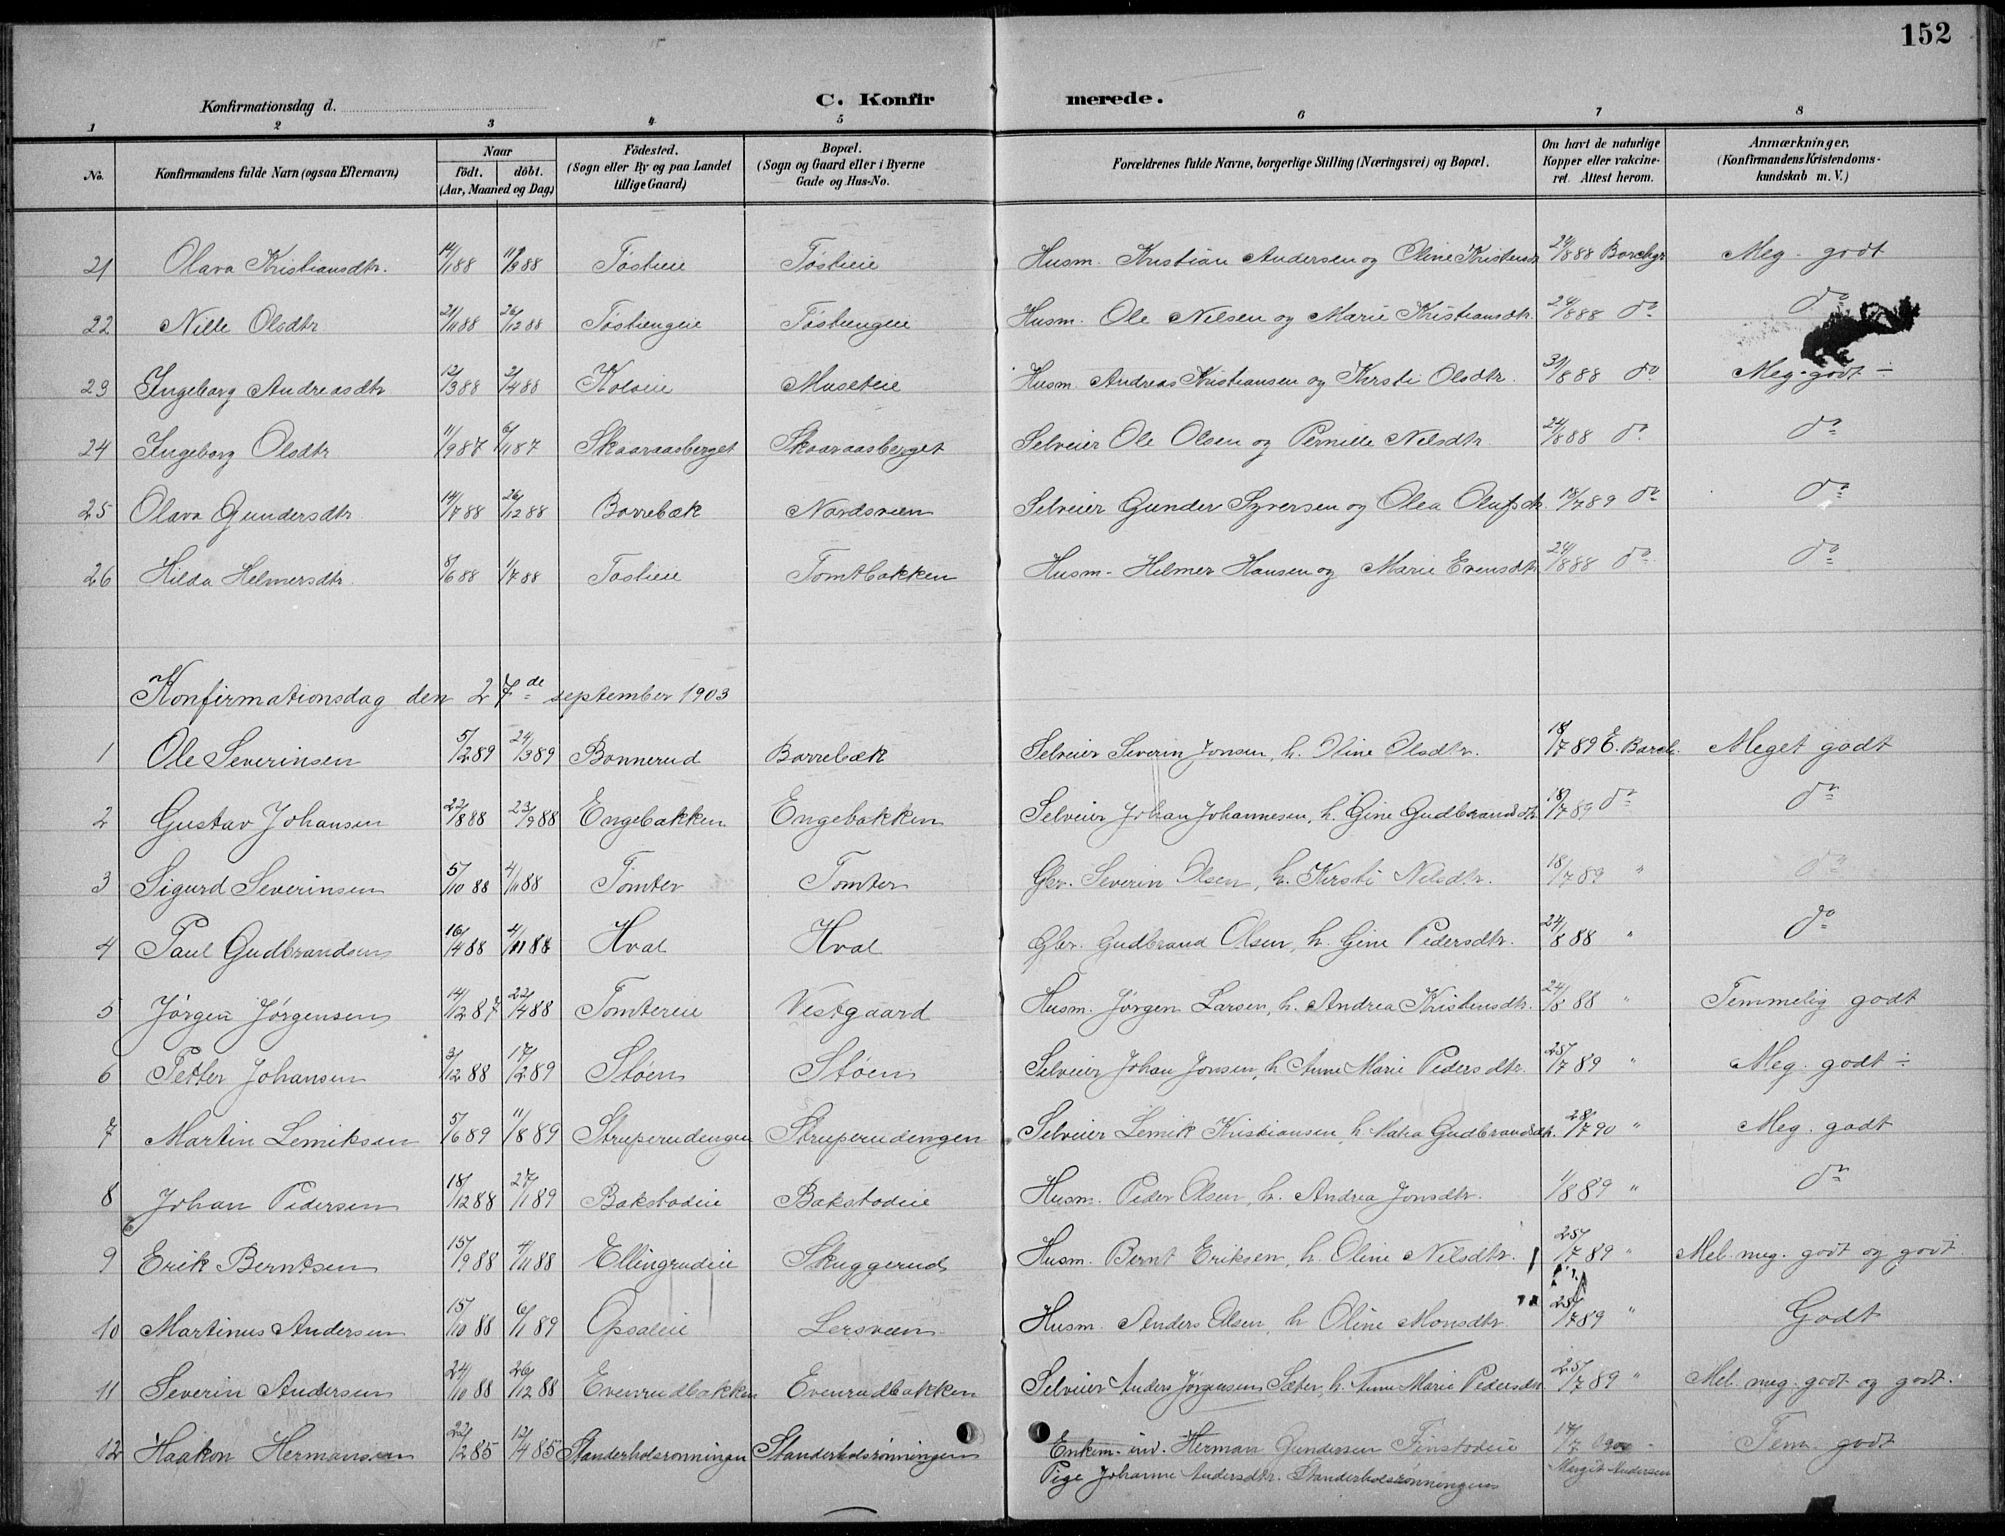 152
Konfirmationsdag d.
C. Konfirmerede.
1 2 3 4 5 6 7 8
No.
Konfirmandens fulde Navn (ogsaa Efternavn)
Naar
födt. döbt.
(Aar, Maaned og Dag)
Födested.
(Sogn eller By og paa Landet
tillige Gaard)
Bopæl.
(Sogn og Gaard eller i Byerne
Gade og Hus-No.
Forældrenes fulde Navne, borgerlige Stilling (Næringsvei) og Bopæl.
Om havt de naturlige
Kopper eller vakcine-
ret. Attest herom.
Anmærkninger.
(Konfirmandens Kristendoms-
kundskab m. V.)
21 Olava Kristiansdtr. 14/1 88 11/3 88 Töstieie Töstieie Husm. Kristian Andersen og Oline Kristensdtr 24/8 88 Borchgr Meg. godt
22 Nille Olsdtr 21/11 88 26/12 88 Töstiengeie Töstiengeie Husm. Ole Nilsen og Marie Kristiansdtr. 24/8 88 do do
23 Ingeborg Andreasdtr 12/3 88 2/4 88 Kolseie Museteie Husm. Andreas Kristiansen og Kirsti Olsdtr. 31/8 88 do Meg. godt ÷
24 Ingeborg Olsdtr 11/9 87 6/11 87 Skaaraasberget Skaaraasberget Selveier Ole Olsen og Pernille Nilsdtr. 24/8 88 do do
25 Olava Gundersdtr 14/7 88 26/12 88 Borrebæk Nordsveen Selveier Gunder Syversen og Olea Olufsdtr. 18/7 89 do do
26 Hilda Helmersdtr. 8/6 88 1/7 88 Tostieie Tomtbakken Husm. Helmer Hansen og Marie Evensdtr 24/8 88 do do
Konfirmationsdag den 27de september 1903
1 Ole Severinsen 5/2 89 24/3 89 Bonnerud Borrebæk Selveier Severin Jonsen, h. Oline Olsdtr. 18/7 89 E. Borch. Meget godt
2 Gustav Johansen 22/8 88 23/9 88 Engebakken Engebakken Selveier Johan Johannesen, h. Gine Gudbrandsdtr 18/7 89 do do
3 Sigurd Severinsen 5/10 88 4/11 88 Tomter Tomter Gbr. Severin Olsen, h. Kirsti Nilsdtr. 18/7 89 " do
4 Paul Gudbrandsen 16/4 88 4/11 88 Hval Hval Gbr. Gudbrand Olsen, h. Gine Pedersdtr. 24/8 88 " do
5 Jørgen Jørgensen 14/12 87 22/4 88 Tomtereie Vestgaard Husm. Jörgen Larsen, h. Andrea Kristensdtr. 24/8 88 " Temmelig godt
6 Petter Johansen 3/12 88 17/2 89 Støen Støen Selveier Johan Jonsen, h. Anne Marie Pedersdtr. 25/7 89 " Meg. godt ÷
7 Martin Lemiksen 5/6 89 11/8 89 Struperudengen Struperudengen Selveier Lemik Kristiansen, h Gudbrandsdtr. 28/7 90 " Meg. godt
8 Johan Pedersen 18/12 88 27/1 89 Bakstadeie Bakstadeie Husm. Peder Olsen, h. Andrea Jonsdtr. 1/8 89 " do
9 Erik Berntsen 15/9 88 4/11 88 Ellingrudeie Skuggerud Husm. Bernt Eriksen, h. Oline Nilsdtr. 25/7 89 " Mel. meg. godt og godt
10 Martinus Andersen 15/10 88 6/1 89 Opsaleie Lersveen Husm. Anders Olsen, h Oline Monsdtr. 25/7 89 " Godt
11 Severin Andersen 24/10 88 26/12 88 Evenrudbakken Evenrudbakken Selveier Anders Jørgensen Sæter, h. Anne Marie Pedersdtr. 25/7 89 " Mel. meg. godt og godt.
12 Haakon Hermansen 22/2 85 12/4 85 Standerholsrønningen Standerholsrønningen Enkem. inv. Herman Gundersen Finstadeie
Pige Johanne Andersdtr. Standerholsrønningen Margit Andersen Tem. godt